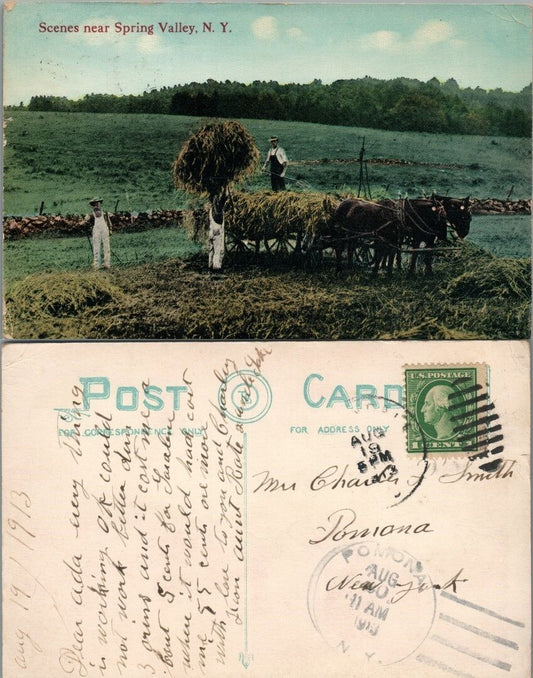 Scenes near Spring Valley, N. Y.
POST CARD
FOR CORRESPONDENCE AND
FOR ADDRESS ONLY
U.S. POSTAGE
1 CENT 1
AUG
19
8 PM
POMONA
AUG
11 AM
1913
N. Y.
Mrs Charles Smith
Pomona
New York
aug 19/1913
Dear ada every thing
is working OK could
not work better drove a
3 and it cost me
5 cents for
where it would have cost
me 75 cents one more
with love to you and Charley
from aunt